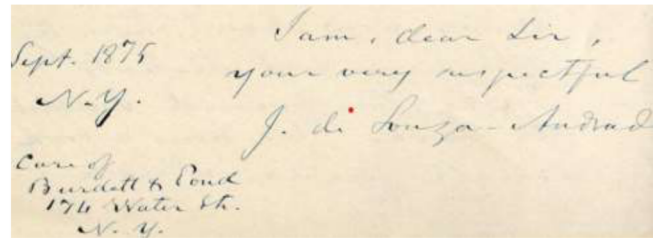 I am, dear Sir,
your very respectful
J. de Souza-Andrad
Sept. 1875
N.Y.
Care of
Burdett & Pond
174 Water St.
N. Y.